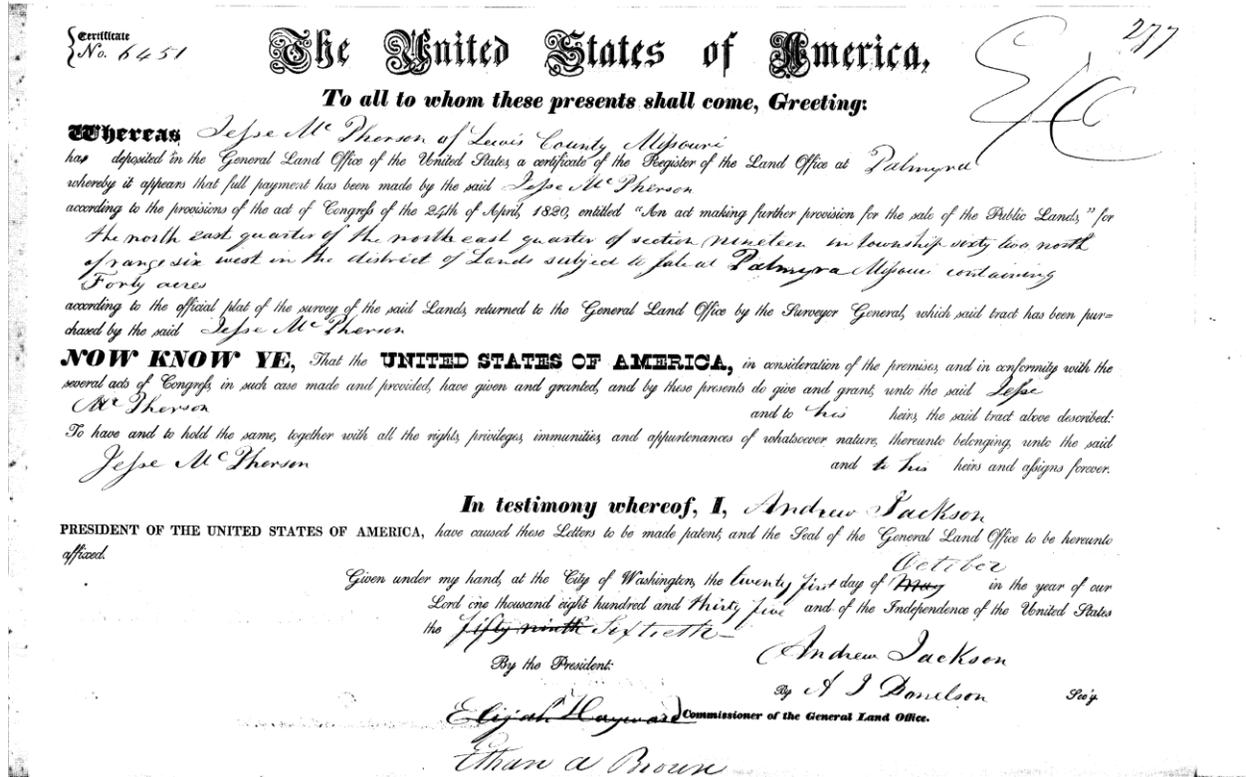 Certificate
No. 6451
277
The United States of America,
To all to whom these presents shall come, Greeting:
Whereas Jesse Mc Pherson of Lewis County Missouri
has deposited in the General Land Office of the United States, a certificate of the Register of the Land Office at Palmyra
whereby it appears that full payment has been made by the said Jesse Mc Pherson
according to the provisions of the act of Congress of the 24th of April, 1820, entitled "An act making further provision for the sale of the Public Lands," for
the north east quarter of the north east quarter of section nineteen in township sixty two north
of range six west in the district of Lands subject to sale at Palmyra Missouri containing
Forty acres
according to the official plat of the survey of the said Lands, returned to the General Land Office by the Surveyor General, which said tract has been pur=
chased by the said Jesse Mc Pherson
NOW KNOW YE, That the UNITED STATES OF AMERICA, in consideration of the premises, and in conformity with the
several acts of Congress, in such case made and provided, have given and granted, and by these presents do give and grant, unto the said Jesse
Mc Pherson and to his heirs, the said tract above described:
To have and to hold the same, together with all the rights, privileges, immunities, and appurtenances of whatsoever nature, thereunto belonging, unto the said
Jesse Mc Pherson and to his heirs and assigns forever.
In testimony whereof, I, Andrew Jackson
PRESIDENT OF THE UNITED STATES OF AMERICA, have caused these Letters to be made patent, and the Seal of the General Land Office to be hereunto
affixed.
October
Given under my hand, at the City of Washington, the twenty first day of May in the year of our
Lord one thousand eight hundred and thirty five and of the Independence of the United States
the fifty ninth Sixtieth
By the President: Andrew Jackson
By A J Donelson Sec'y.
Elijah Hayward Commissioner of the General Land Office.
Ethan A Brown